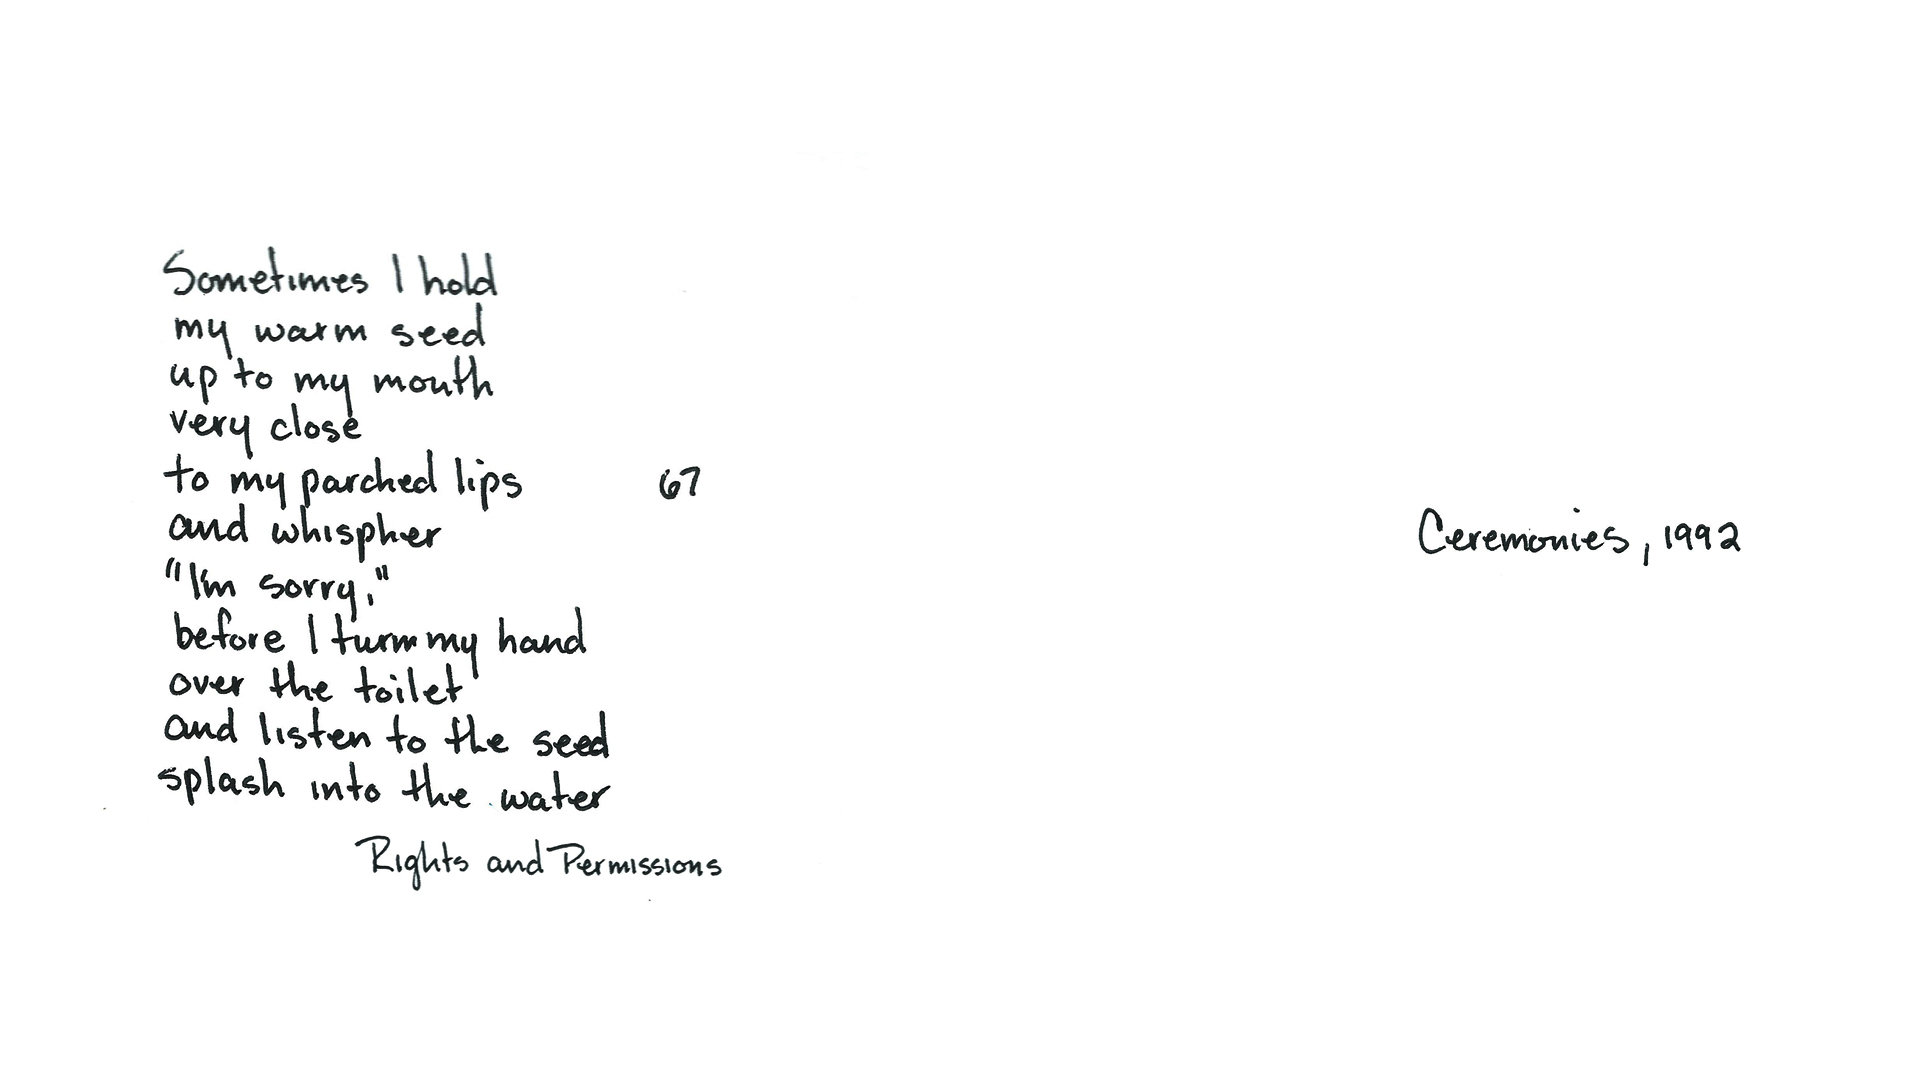 Sometimes I hold
my warm seed
up to my mouth
very close
to my parched lips 67
and whispher
"I'm sorry,"
before I turn my hand
over the toilet
and listen to the seed
splash into the water
Rights and Permissions
Ceremonies, 1992